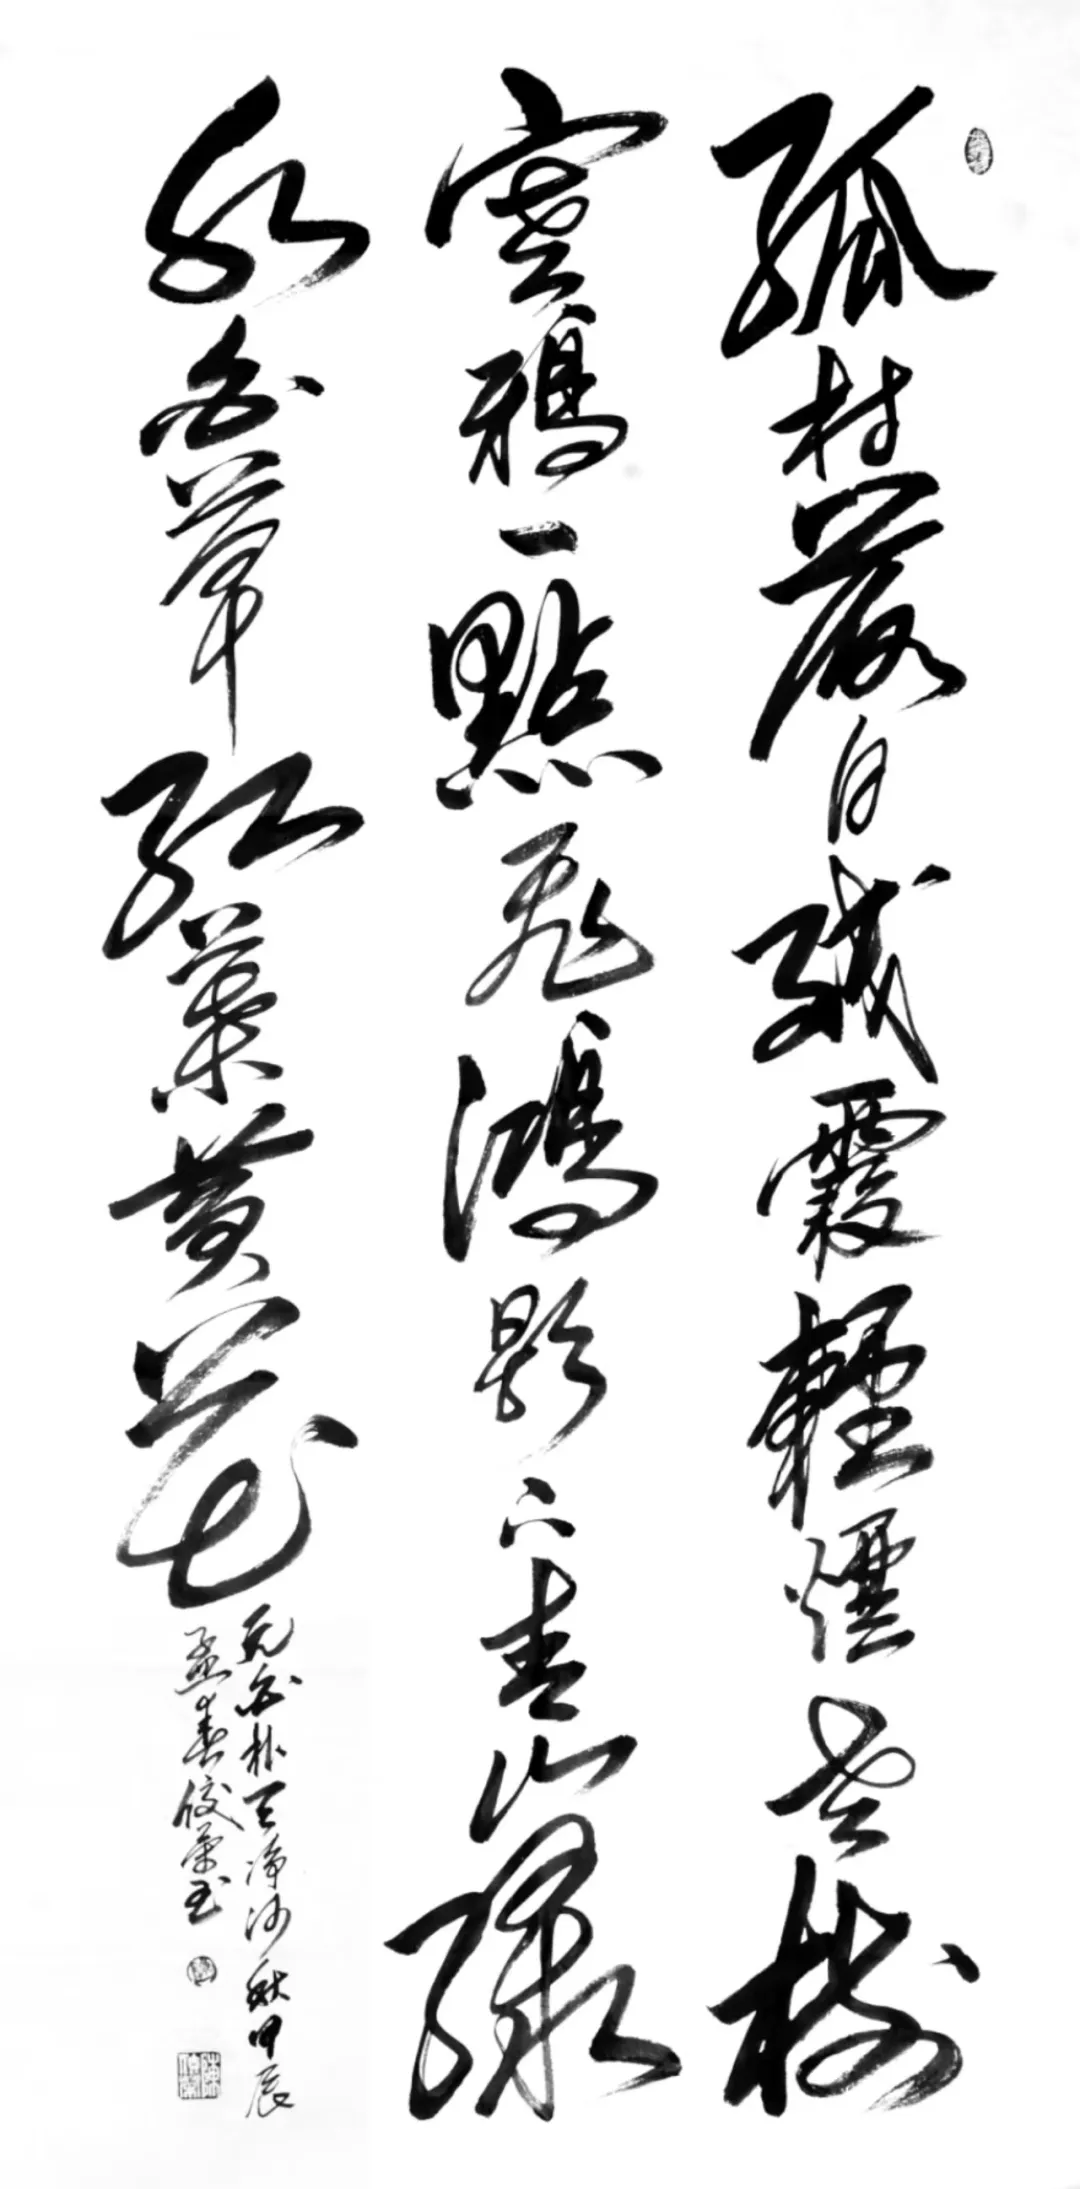 孤村落日殘霞輕煙老樹
寒鴉一點飛鴻影下青山綠
水白草紅葉黃花
元白朴天淨沙秋甲辰
孟春俊榮